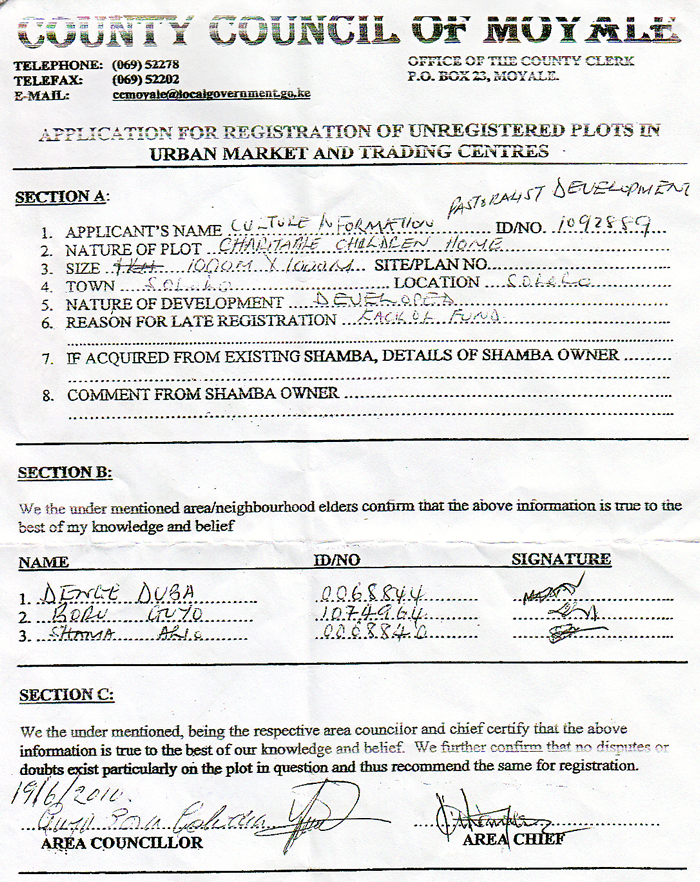 COUNTY COUNCIL OF MOYALE
TELEPHONE: (069) 52278
TELEFAX: (069) 52202
E-MAIL: ccmoyale@localgovernment.go.ke
OFFICE OF THE COUNTY CLERK
P.O. BOX 23, MOYALE.
APPLICATION FOR REGISTRATION OF UNREGISTERED PLOTS IN
URBAN MARKET AND TRADING CENTRES
SECTION A:
PASTORALIST DEVELOPMENT
1. APPLICANT'S NAME CULTURE INFORMATION ID/NO. 1092889
2. NATURE OF PLOT CHARITABLE CHILDREN HOME
3. SIZE 1000M X 1000M SITE/PLAN NO.
4. TOWN SOLOLO LOCATION SOLOLO
5. NATURE OF DEVELOPMENT DEVELOPED
6. REASON FOR LATE REGISTRATION LACK OF FUND
7. IF ACQUIRED FROM EXISTING SHAMBA, DETAILS OF SHAMBA OWNER
8. COMMENT FROM SHAMBA OWNER
SECTION B:
We the under mentioned area/neighbourhood elders confirm that the above information is true to the
best of my knowledge and belief
NAME ID/NO SIGNATURE
1. DENGE DUBA 0068844
2. BORU GUYO 1074964
3. SHAMA 0068840
SECTION C:
We the under mentioned, being the respective area councilor and chief certify that the above
information is true to the best of our knowledge and belief. We further confirm that no disputes or
doubts exist particularly on the plot in question and thus recommend the same for registration.
19/6/2010.
AREA COUNCILLOR AREA CHIEF